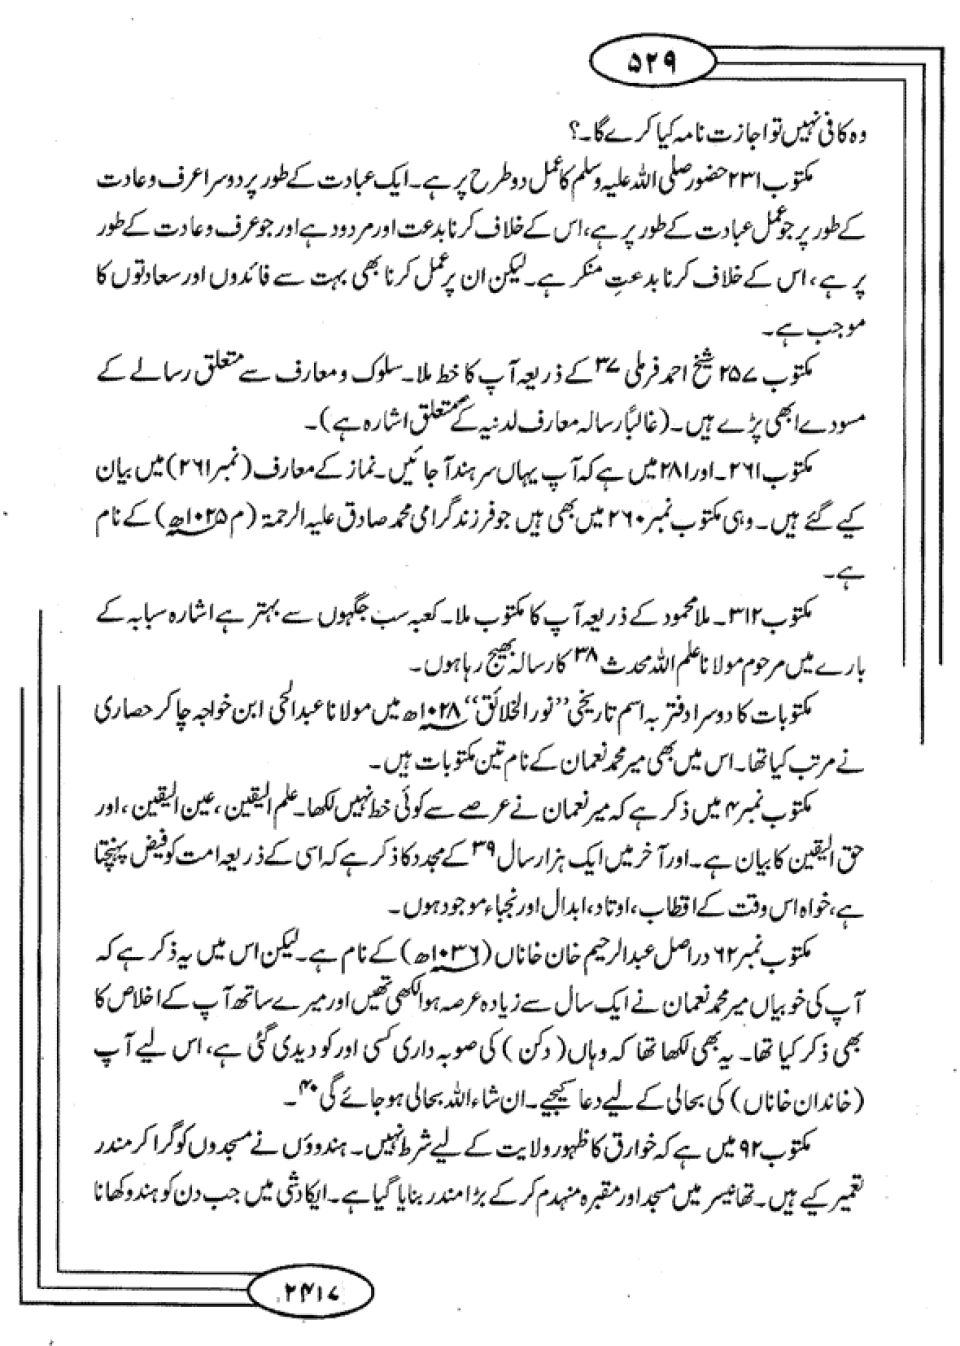 ۵۲۹
وہ کافی نہیں تو اجازت نامہ کیا کرے گا۔؟
مکتوب ۲۳۱ حضور صلی اللہ علیہ وسلم کا عمل دو طرح پر ہے۔ ایک عبادت کے طور پر دوسرا عرف و عادت
کے طور پر جو عمل عبادت کے طور پر ہے، اس کے خلاف کرنا بدعت اور مردود ہے اور جو عرف و عادت کے طور
پر ہے، اس کے خلاف کرنا بدعتِ منکر ہے۔ لیکن ان پر عمل کرنا بھی بہت سے فائدوں اور سعادتوں کا
موجب ہے۔
مکتوب ۲۵۷ شیخ احمد فرملی ۳۷ کے ذریعہ آپ کا خط ملا۔ سلوک و معارف سے متعلق رسالے کے
مسودے ابھی پڑے ہیں۔ (غالباً رسالہ معارف لدنیہ کے متعلق اشارہ ہے)۔
مکتوب ۲۶۱۔ اور ۲۸۱ میں ہے کہ آپ یہاں سرہند آ جائیں۔ نماز کے معارف (نمبر ۲۶۱) میں بیان
کیے گئے ہیں۔ وہی مکتوب نمبر ۲۶۰ میں بھی ہیں جو فرزند گرامی محمد صادق علیہ الرحمۃ (م ۱۰۲۵ھ) کے نام
ہے۔
مکتوب ۳۱۲۔ ملا محمود کے ذریعہ آپ کا مکتوب ملا۔ کعبہ سب جگہوں سے بہتر ہے اشارہ سبابہ کے
بارے میں مرحوم مولانا علم اللہ محدث ۳۸ کا رسالہ بھیج رہا ہوں۔
مکتوبات کا دوسرا دفتر بہ اسم تاریخی ”نور الخلائق“ ۱۰۲۸ھ میں مولانا عبدالحی ابن خواجہ چاکر حصاری
نے مرتب کیا تھا۔ اس میں بھی میر محمد نعمان کے نام تین مکتوبات ہیں۔
مکتوب نمبر ۴ میں ذکر ہے کہ میر نعمان نے عرصے سے کوئی خط نہیں لکھا۔ علم الیقین، عین الیقین، اور
حق الیقین کا بیان ہے۔ اور آخر میں ایک ہزار سال ۳۹ کے مجدد کا ذکر ہے کہ اسی کے ذریعہ امت کو فیض پہنچتا
ہے، خواہ اس وقت کے اقطاب، اوتاد، ابدال اور نجباء موجود ہوں۔
مکتوب نمبر ۶۲ دراصل عبدالرحیم خان خاناں (۱۰۳۶ھ) کے نام ہے۔ لیکن اس میں یہ ذکر ہے کہ
آپ کی خوبیاں میر محمد نعمان نے ایک سال سے زیادہ عرصہ ہوا لکھی تھیں اور میرے ساتھ آپ کے اخلاص کا
بھی ذکر کیا تھا۔ یہ بھی لکھا تھا کہ وہاں (دکن) کی صوبہ داری کسی اور کو دیدی گئی ہے، اس لیے آپ
(خاندان خاناں) کی بحالی کے لیے دعا کیجیے۔ ان شاء اللہ بحالی ہو جائے گی ۴۰۔
مکتوب ۹۲ میں ہے کہ خوارق کا ظہور ولایت کے لیے شرط نہیں۔ ہندوؤں نے مسجدوں کو گرا کر مندر
تعمیر کیے ہیں۔ تھانیسر میں مسجد اور مقبرہ منہدم کر کے بڑا مندر بنایا گیا ہے۔ ایکادشی میں جب دن کو ہندو کھانا
۲۴۱۷